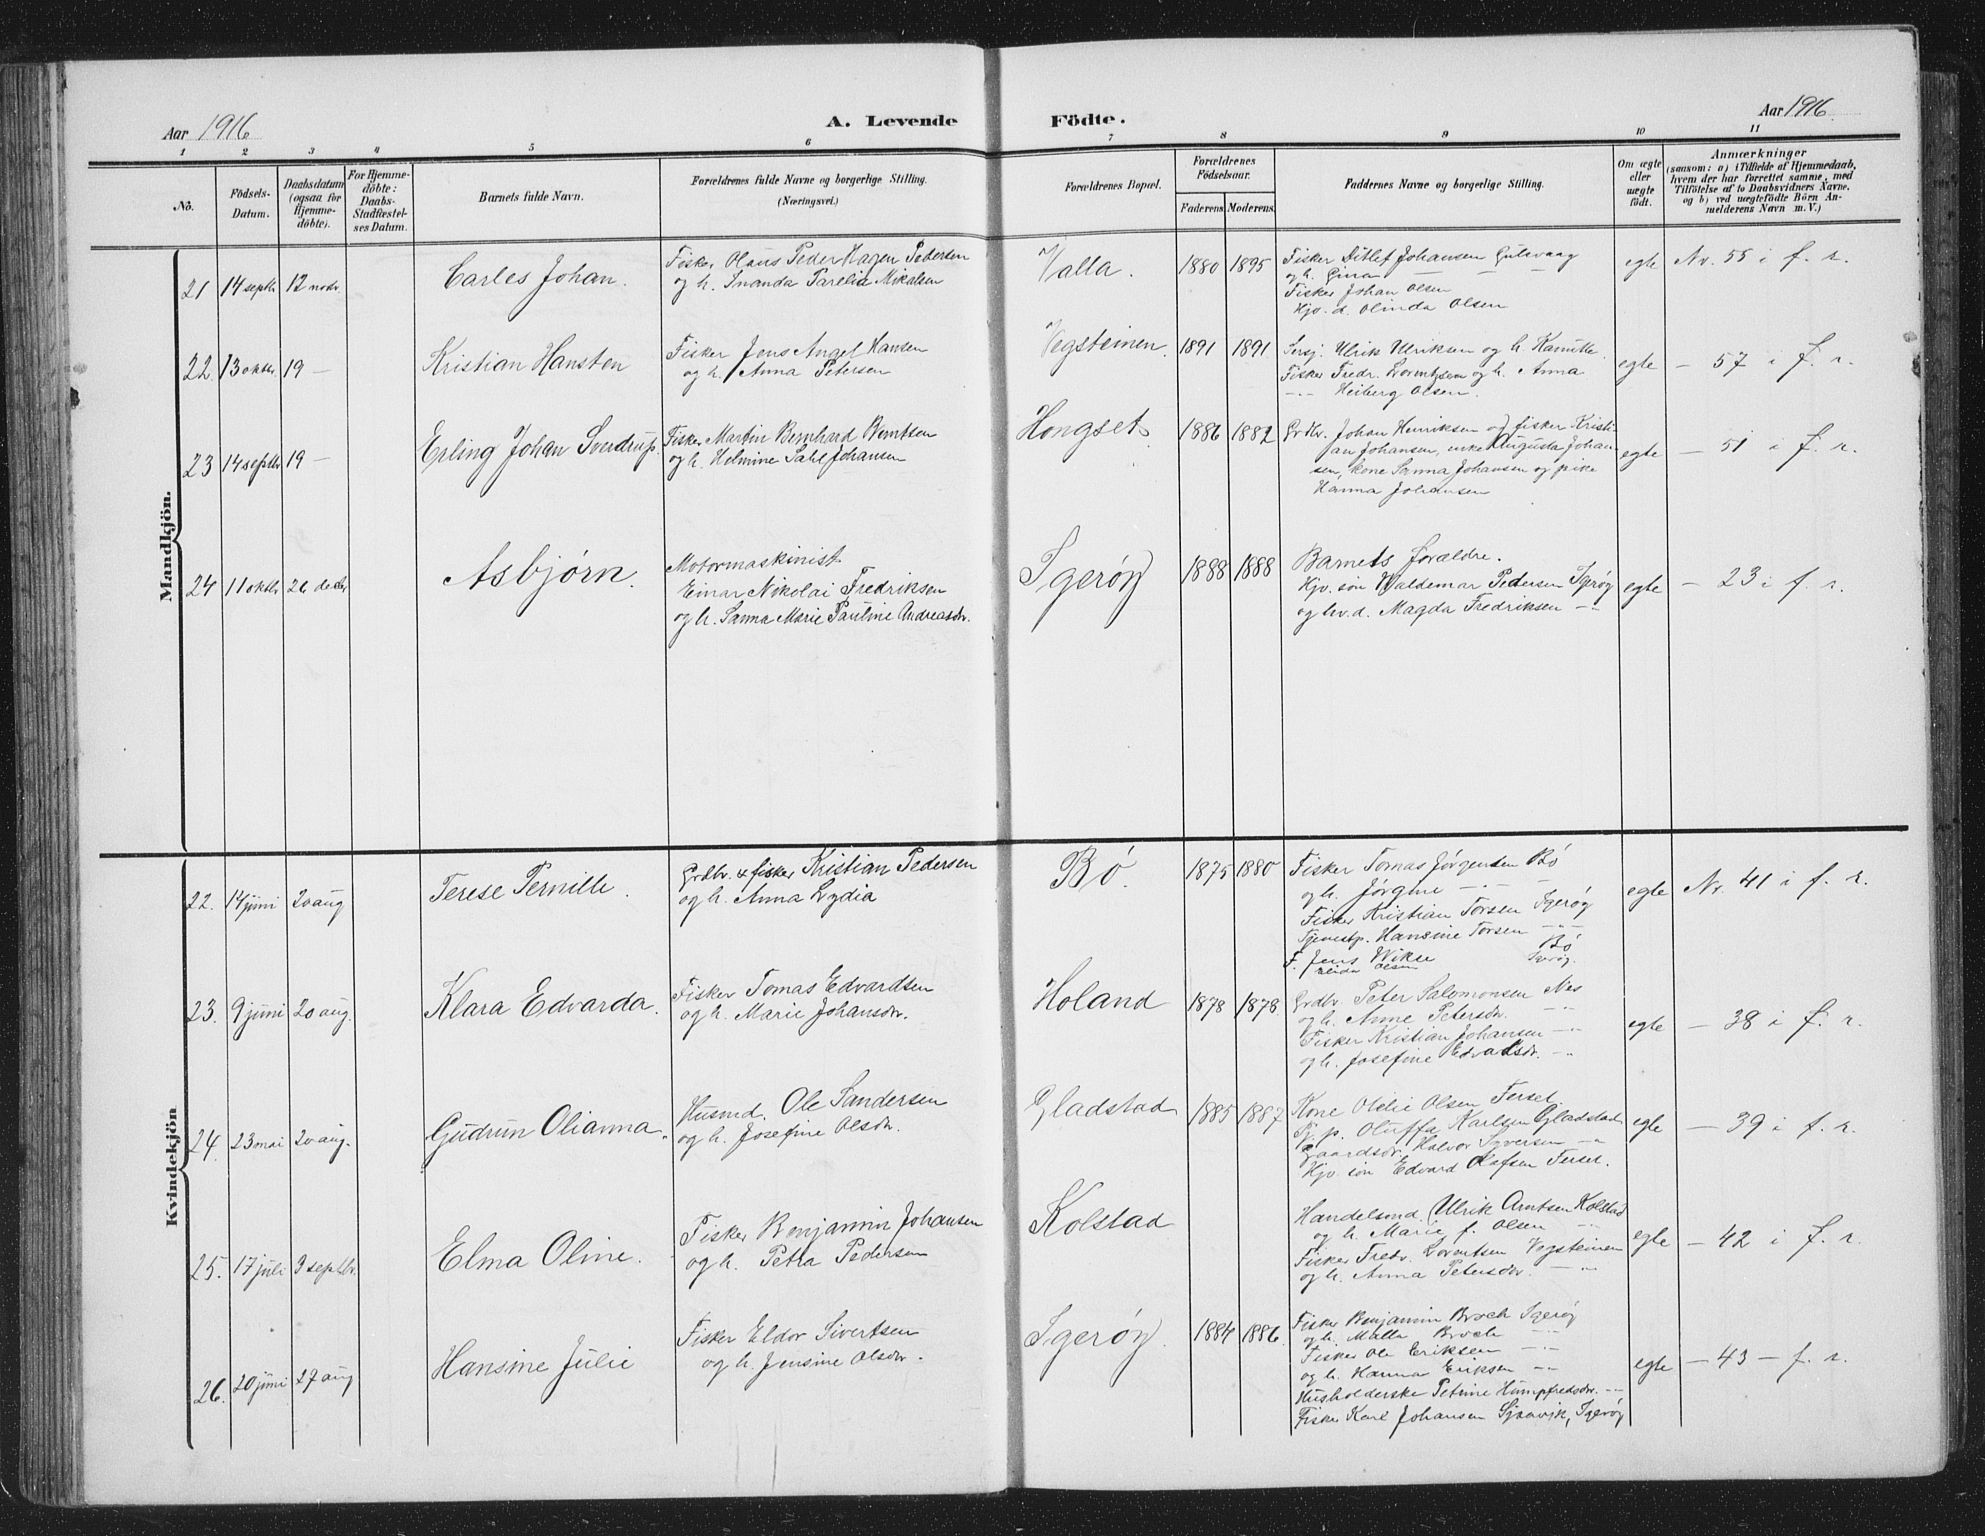 Aar 1916
A. Levende Födte.
Aar 1916
1 2 3 4 5 6 7 8 9 10 11
No.
Födsels-
Datum.
Daabsdatum
(ogsaa for
Hjemme-
döbte).
For Hjemme-
döbte:
Daabs-
Stadfæstel-
ses Datum.
Barnets fulde Navn.
Forældrenes fulde Navne og borgerlige Stilling.
(Næringsvei.)
Forældrenes Bopæl.
Forældrenes
Födselsaar.
Faderens Moderens.
Faddernes Navne og borgerlige Stilling.
Om ægte
eller
uægte
födt.
Anmærkninger
(saasom: a) i Tilfælde af Hjemmedaab,
hvem der har forrettet samme, med
Tilföielse af to Daabsvidners Navne,
og b) ved uægtefödte Börn An-
melderens Navn m. V.)
Mandkjön.
21 14 septbr 12 novbr. Carles Johan.
Fisker Olaus Peder Hagen Pedersen
og h. Inanda Parelia Mikalsen
Valla. 1880 1895
Fisker Ditlef Johansen Gulsvaag
og h. Gina — —
Fisker Johan Olsen
Hjv. d. Olinda Olsen
egte Nr. 55 i f. r.
22. 13 oktbr. 19 — Kristian Hansten
Fisker Jens Angel Hansen
og h. Anna Petersen
Vegsteinen. 1891 1891
Ulrik Ulriksen og h.
Fisker Fredr. Lorentzen og h. Anna
-"- Heiberg Olsen.
egte — 57 i f. r.
23 14 septbr 19 — Erling Johan Sverdrup.
Fisker Martin Bernhard Berntsen
og h. Helmine Johansen
Hongset. 1886 1882
Grdbr. Johan Henriksen og fisker Kristi-
an Johansen, enke Augusta Johan-
sen, kone Sanna Johansen og pike
Hanna Johansen
egte — 51 i f. r.
24 11 oktbr 26 decbr Asbjørn.
Motormaskinist
Einar Nikolai Fredriksen
og h. Sanna Marie Pauline Andreasdtr.
Igerøy 1888 1888
Barnets forældre.
Hjv. søn Waldemar Pedersen Igerøy
og hv. d. Magda Fredriksen -"-
egte — 23 i f. r.
Kvindekjön
22. 14 juni 20 aug Terese Pernille.
Grdbr. & fisker Kristian Pedersen
og h. Anna Lydia
Bø. 1875 1880
Fisker Tomas Jørgensen Bø
og h. Jørgine -"- -"-
Fisker Kristian Torsen Igerøy
Tjenestp. Hansine Torsen -"-
F. Jens Wikse Bø
Olsen
egte Nr. 41 i f. r.
23. 9 juni 20 aug. Klara Edvarda.
Fisker Tomas Edvardsen
og h. Marie Johansdtr.
Holand 1878 1878
Grdbr. Peter Salomonsen Nes
og h. Anne Petersdtr. -"-
Fisker Kristian Johansen -"-
og h. Josefine Edvardsdtr. -"-
egte — 38 i f. r.
24. 23 mai 20 aug. Gudrun Olianna.
Husmd. Ole Sandersen
og h. Josefine Olsdtr.
Gladstad 1885 1887
Kone Otelie Olsen Terset.
Tj. p. Oluffa Karlsen Gladstad
Gaardsdr. Halvor Syversen -"-
Hjv. søn Edvard Olafsen Terset.
egte — 39 i f. r.
25. 17 juli 3 septbr. Elma Oline.
Fisker Benjamin Johansen
og h. Petra Pedersen
Kolstad
Handelsmd. Ulrik Arntsen Kolstad
og h. Marie f. Olsen -"-
Fisker Fredr. Lorentsen Vegsteinen
og h. Anna Petersdtr. -"-
egte — 42 i f. r.
26. 20 juni 27 aug Hansine Julie
Fisker Eldor Sivertsen
og h. Jensine Olsdtr.
Igerøy. 1884 1886.
Fisker Benjamin Broch Igerøy
og h. Malla Broch -"-
Fisker Ole Eriksen -"-
og h. Hanna Eriksen -"-
Husholderske Petrine Humpfredsdtr. -"-
Fisker Karl Johansen Sjaavik, Igerøy
egte — 43 — f. r.